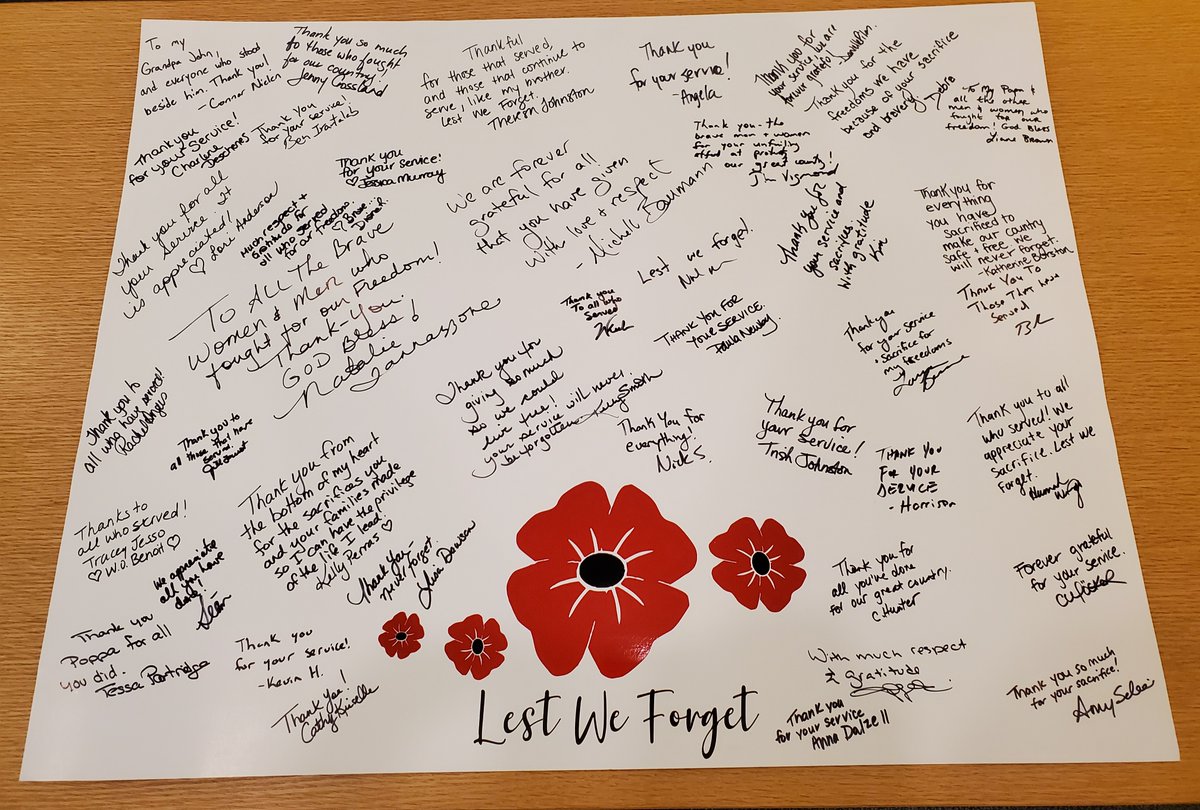 To my
Grandpa John,
and everyone who stood
beside him. Thank you!
- Connor Nielen
Thank you so much
to those who fought
for our country!
Jenny Crossland
Thankful
for those that served,
and those that continue to
serve, like my brother.
Lest We Forget.
Theresa Johnston
Thank you
for your service!
- Angela
Thank you for
your service we are
forever grateful
Thank you for the
freedoms we have
because of your sacrifice
and bravery. Debre
To My Papa &
all the other
men & women who
fought for our
freedom! God Bless
Liane Brown
Thank you
for your Service!
Charlene
Deschenes
Thank you
for your service!
Ben
Thank you
for your service!
♡ Jessica Murray
Thank you - the
brave men & women
for your unfailing
effort at protecting
our great country!
We are forever
grateful for all
that you have given
With love & respect
- Michell Baumann
Thank you for
your service and
sacrifice.
With gratitude
Kim
Thank you for
everything
you have
sacrificed to
make our country
safe & free. We
will never forget.
- Katherine Botston
Thank you for all
your service it
is appreciated!
♡ Lori Anderson
Much respect +
gratitude for
all who served
for our freedom.
Lest we forget.
To All The Brave
Women & Men who
fought for our Freedom!
Thank-You.
GOD Bless!
Natalie
Iannassone
Thank you
To all who
Served
Thank You For
Your Service.
Paula Newby
Thank you
for your service
& sacrifice for
my freedoms
Thank You To
Those That have
Served
Thank you to
all who have served!
Rachel Angus
Thank you to
all those that have
served
Thank you for
giving so much
so we could
live free!
your service will never
be forgotten
Kelly Smith
Thank you for
everything!
Nick S.
Thank you for
your Service!
Trish Johnston
Thank you
for your
service
- Harrison
Thank you to all
who served! We
appreciate your
sacrifice. Lest we
forget.
Thank you from
the bottom of my heart
for the sacrifices you
and your families made
so I can have the privilege
of the life I lead!
Kelly Perras ♡
Thanks to
all who served!
Tracey Jesso
♡ W.O. Benoit ♡
We appreciate
all you have
done!
Sean
Thank you -
Never forget.
Lisa Dawson
Thank you for
all you've done
for our great country.
C Hunter
Forever grateful
for your service.
Thank you
Poppa for all
you did.
Tessa Partridge
Thank you
for your service!
- Kevin H.
Thank you!
Cathy Kivelle
With much respect
& gratitude
Thank you so much
for your sacrifice!
Amy
Thank you
for your service
Anna Dalzell
Lest We Forget